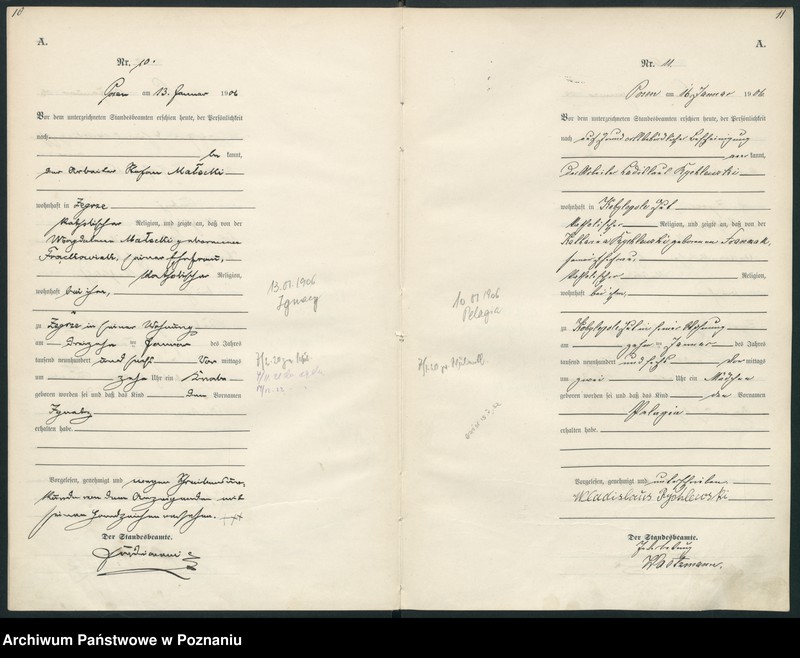 10
A.
Nr. 10.
Posen am 13. Januar 1906
Vor dem unterzeichneten Standesbeamten erschien heute, der Persönlichkeit
nach
be kannt,
der Arbeiter Stefan Małecki
wohnhaft in Zegrze
katholischer Religion, und zeigte an, daß von der
Magdalena Małecki geborenen
Frąckowiak, seiner Ehefrau,
katholischer Religion,
wohnhaft bei ihm,
zu Zegrze in seiner Wohnung
am Januar des Jahres
tausend neunhundert und sechs Vor mittags
um zehn Uhr ein Knabe
geboren worden sei und daß das Kind den Vornamen
Ignatz
erhalten habe.
Vorgelesen, genehmigt und wegen Schreibens
von dem Anzeigenden mit
seinem Handzeichen versehen. +++
Der Standesbeamte.
13.01.1906
Ignacy
11
A.
Nr. 11.
Posen am 16. Januar 1906
Vor dem unterzeichneten Standesbeamten erschien heute, der Persönlichkeit
nach auf Grund Bescheinigung
kannt,
der Arbeiter Ladislaus Rychlewski
wohnhaft in Kobylepole Gut
katholischer Religion, und zeigte an, daß von der
Rychlewski geborenen
seiner Ehefrau,
katholischer Religion,
wohnhaft bei ihm,
zu Kobylepole Gut in seiner Wohnung
am zehn Januar des Jahres
tausend neunhundert und sechs Vor mittags
um zwei Uhr ein Mädchen
geboren worden sei und daß das Kind den Vornamen
Pelagia
erhalten habe.
Vorgelesen, genehmigt und unterschrieben
Wladislaus Rychlewski
Der Standesbeamte.
In Vertretung
10 01 1906
Pelagia
Archiwum Państwowe w Poznaniu